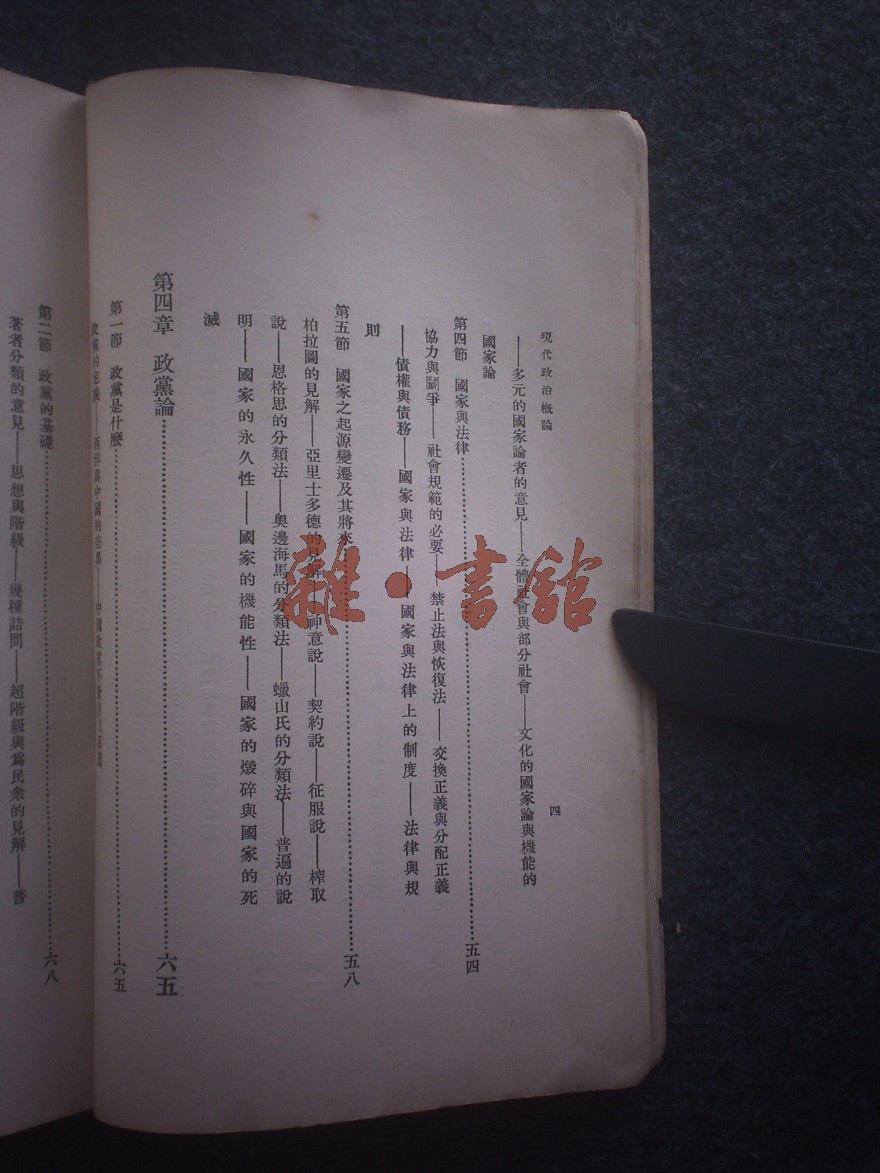 現代政治概論
四
——多元的國家論者的意見——全體社會與部分社會——文化的國家論與機能的
國家論
第四節　國家與法律……五四
協力與鬭爭——社會規範的必要——禁止法與恢復法——交換正義與分配正義
——債權與債務——國家與法律——國家與法律上的制度——法律與規
則
第五節　國家之起源變遷及其將來……五八
柏拉圖的見解——亞里士多德的見解——神意說——契約說——征服說——榨取
說——恩格思的分類法——奧邊海馬的分類法——蠟山氏的分類法——普遍的說
明——國家的永久性——國家的機能性——國家的燬碎與國家的死
滅
第四章　政黨論……六五
第一節　政黨是什麼……六五
政黨的定義——西洋與中國的差異——中國政黨不發
第二節　政黨的基礎……六八
著者分類的意見——思想與階級——幾種詰問——超階級與爲民衆的見解——普
雜·書館